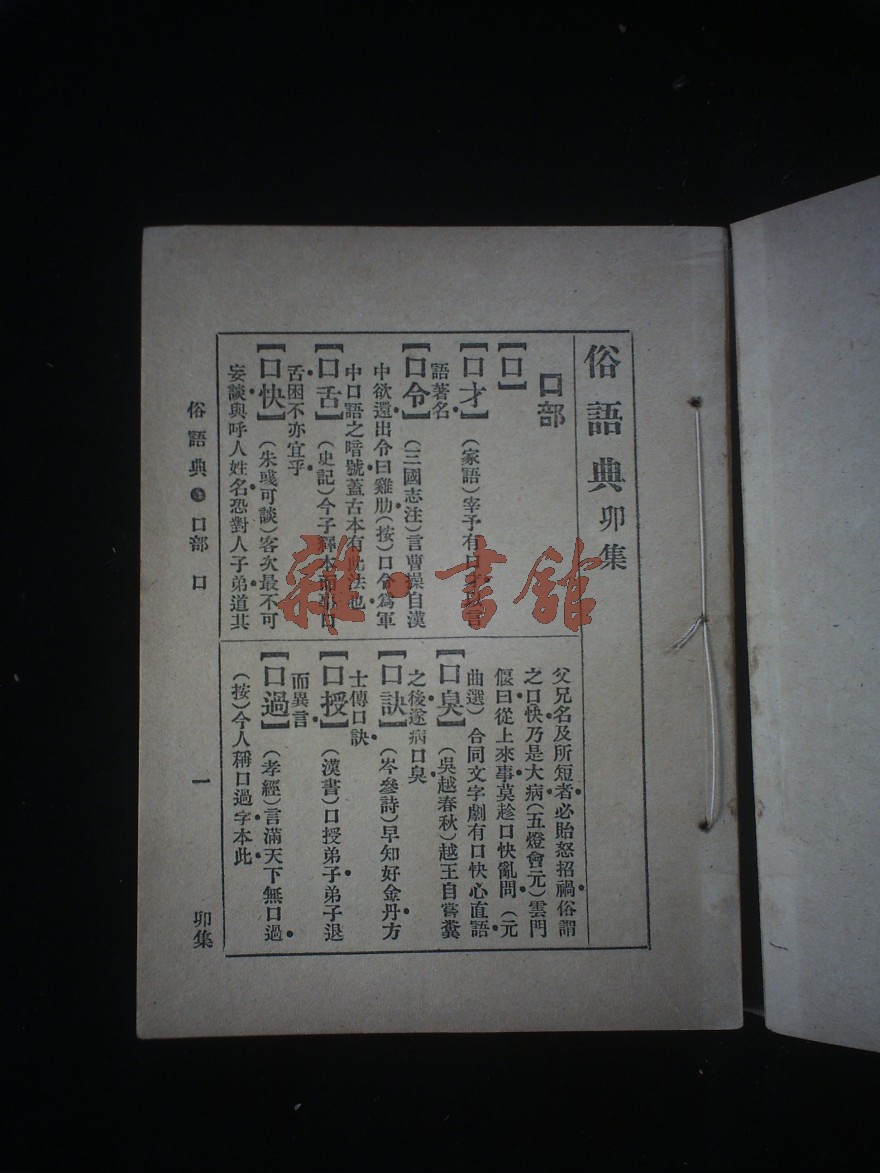 俗語典 卯集
口部
【口】
【口才】（家語）宰予有口才以言
語著名
【口令】（三國志注）言曹操自漢
中欲還出令曰雞肋（按）口令爲軍
中口語之暗號蓋古本有此法也
【口舌】（史記）今子釋本而事口
舌困不亦宜乎
【口快】（朱彧可談）客次最不可
妄談與呼人姓名恐對人子弟道其
父兄名及所短者必貽怒招禍俗謂
之口快乃是大病（五燈會元）雲門
偃曰從上來事莫趁口快亂問（元
曲選）合同文字劇有口快心直語
【口臭】（吳越春秋）越王自嘗糞
之後遂病口臭
【口訣】（岑參詩）早知好金丹方
士傳口訣
【口授】（漢書）口授弟子弟子退
而異言
【口過】（孝經）言滿天下無口過
（按）今人稱口過字本此
俗語典 口部 口 一 卯集
雜·書館